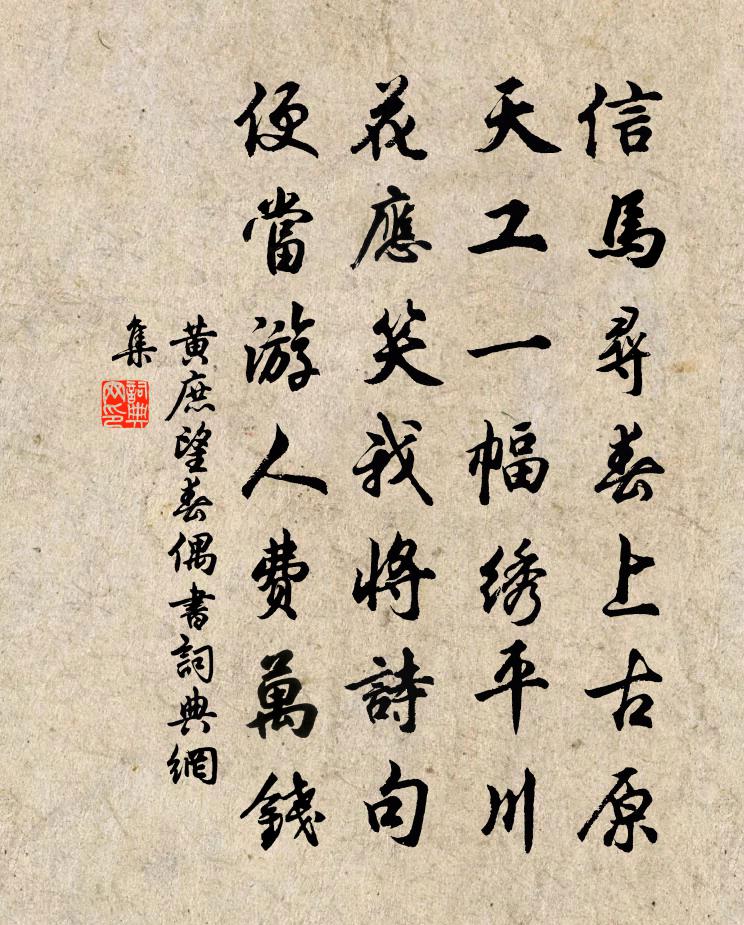 信馬尋春上古原
天工一幅绣平川
花應笑我將詩句
便當游人費萬錢
黃庶望春偶書詞典網
集
詞典
网印